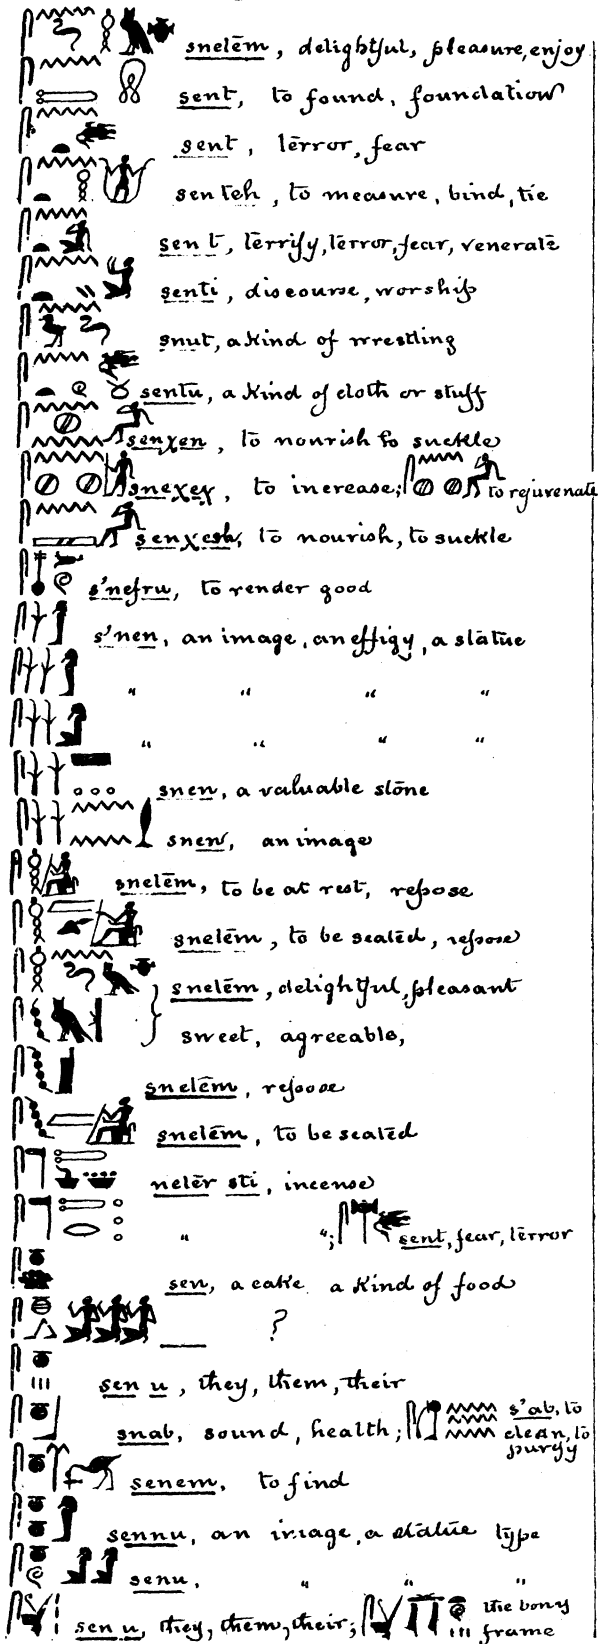 snetēm, delightful, pleasure, enjoy
sent, to found, foundation
sent, tērror, fear
sen teh, to measure, bind, tie
sen t, tērrify, tērror, fear, veneratē
senti, discourse, worship
snut, a kind of wrestling
sentu, a kind of cloth or stuff
senχen, to nourish to suckle
sneχeχ, to increase; to rejuvenatē
senχesh, to nourish, to suckle
s'nefru, to render good
s'nen, an image, an effigy, a stātue
" " " "
" " " "
snen, a valuable stōne
snen, an image
snetēm, to be at rest, repose
snetēm, to be seatēd, repose
snetēm, delightful, pleasant
sweet, agreeable,
snetēm, repose
snetēm, to be seatēd
netēr sti, incense
" "; sent, fear, tērror
sen, a cake a kind of food
?
sen u, they, them, their
snab, sound, health; s'ab, to clean, to purify
senem, to find
sennu, an image, a statūe type
senu, " " "
sen u, they, them, their; the bony frame